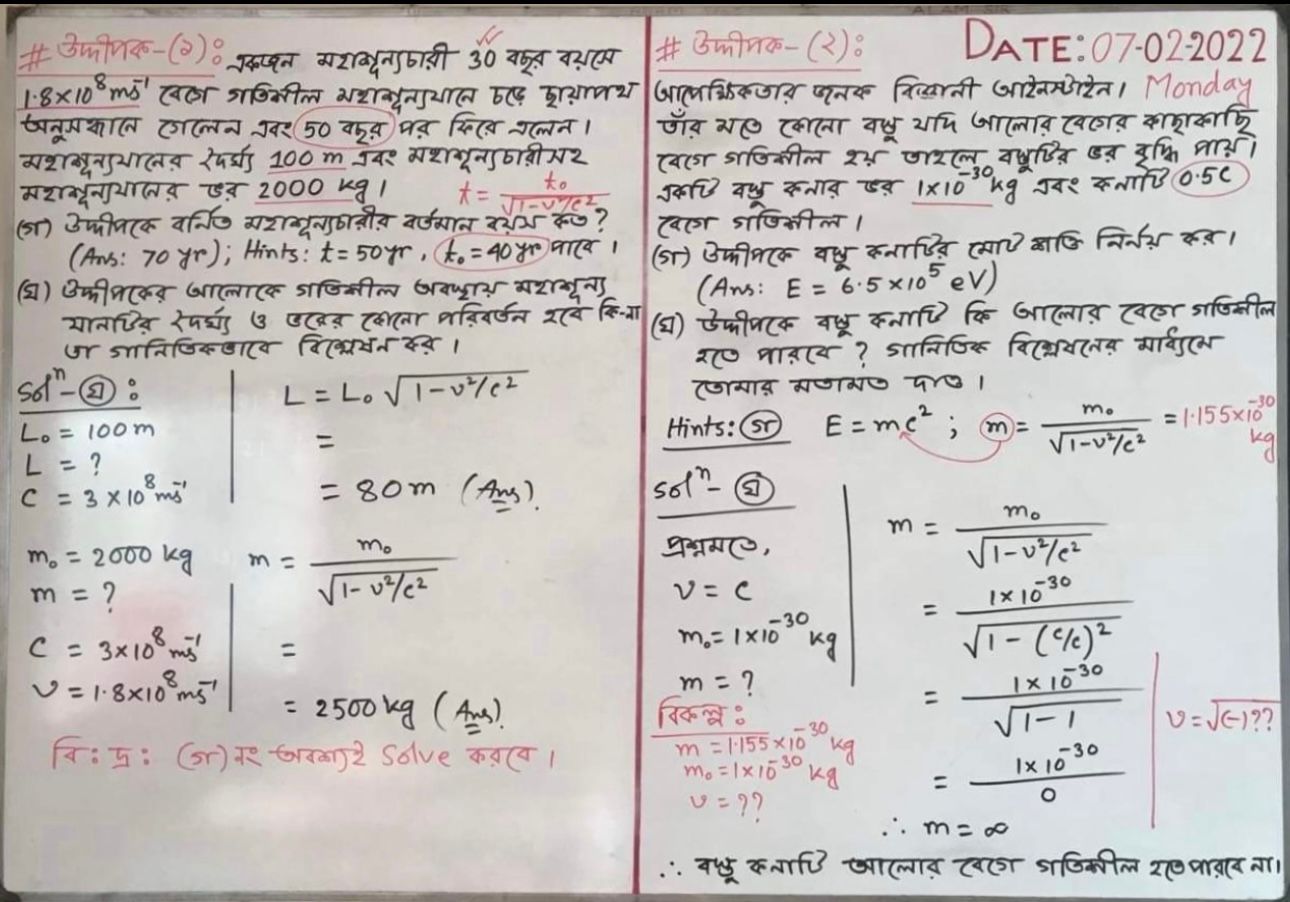 # উদ্দীপক-(১): একজন মহাশূন্যচারী 30 বছর বয়সে
1.8×10⁸ ms⁻¹ বেগে গতিশীল মহাশূন্যযানে চড়ে ছায়াপথ
অনুসন্ধানে গেলেন এবং 50 বছর পর ফিরে এলেন।
মহাশূন্যযানের দৈর্ঘ্য 100 m এবং মহাশূন্যচারীসহ
মহাশূন্যযানের ভর 2000 kg।
t = t₀/√1-v²/c²
(গ) উদ্দীপকে বর্নিত মহাশূন্যচারীর বর্তমান বয়স কত?
(Ans: 70 yr); Hints: t = 50 yr, t₀ = 40 yr পাবে।
(ঘ) উদ্দীপকের আলোকে গতিশীল অবস্থায় মহাশূন্য
যানটির দৈর্ঘ্য ও ভরের কোনো পরিবর্তন হবে কি-না
তা গানিতিকভাবে বিশ্লেষন কর।
Solⁿ-(ঘ):
L₀ = 100 m
L = ?
C = 3×10⁸ ms⁻¹
L = L₀ √1-v²/c²
=
= 80 m (Ans).
m₀ = 2000 kg
m = ?
C = 3×10⁸ ms⁻¹
v = 1.8×10⁸ ms⁻¹
m = m₀/√1-v²/c²
=
= 2500 kg (Ans).
বি: দ্র: (গ) নং অবশ্যই Solve করবে।
DATE: 07-02-2022
Monday
# উদ্দীপক-(২):
আপেক্ষিকতার জনক বিজ্ঞানী আইনস্টাইন।
তাঁর মতে কোনো বস্তু যদি আলোর বেগের কাছাকাছি
বেগে গতিশীল হয় তাহলে বস্তুটির ভর বৃদ্ধি পায়।
একটি বস্তু কনার ভর 1×10⁻³⁰ kg এবং কনাটি 0.5C
বেগে গতিশীল।
(গ) উদ্দীপকে বস্তু কনাটির মোট শক্তি নির্নয় কর।
(Ans: E = 6.5×10⁵ eV)
(ঘ) উদ্দীপকে বস্তু কনাটি কি আলোর বেগে গতিশীল
হতে পারবে? গানিতিক বিশ্লেষনের মাধ্যমে
তোমার মতামত দাও।
Hints: (গ) E = mc²; m = m₀/√1-v²/c² = 1.155×10⁻³⁰ kg
Solⁿ-(ঘ)
প্রশ্নমতে,
v = c
m₀ = 1×10⁻³⁰ kg
m = ?
বিকল্প:
m = 1.155×10⁻³⁰ kg
m₀ = 1×10⁻³⁰ kg
v = ??
m = m₀/√1-v²/c²
= 1×10⁻³⁰/√1-(c/c)²
= 1×10⁻³⁰/√1-1
= 1×10⁻³⁰/0
∴ m = ∞
v = √(-)??
∴ বস্তু কনাটি আলোর বেগে গতিশীল হতে পারবে না।